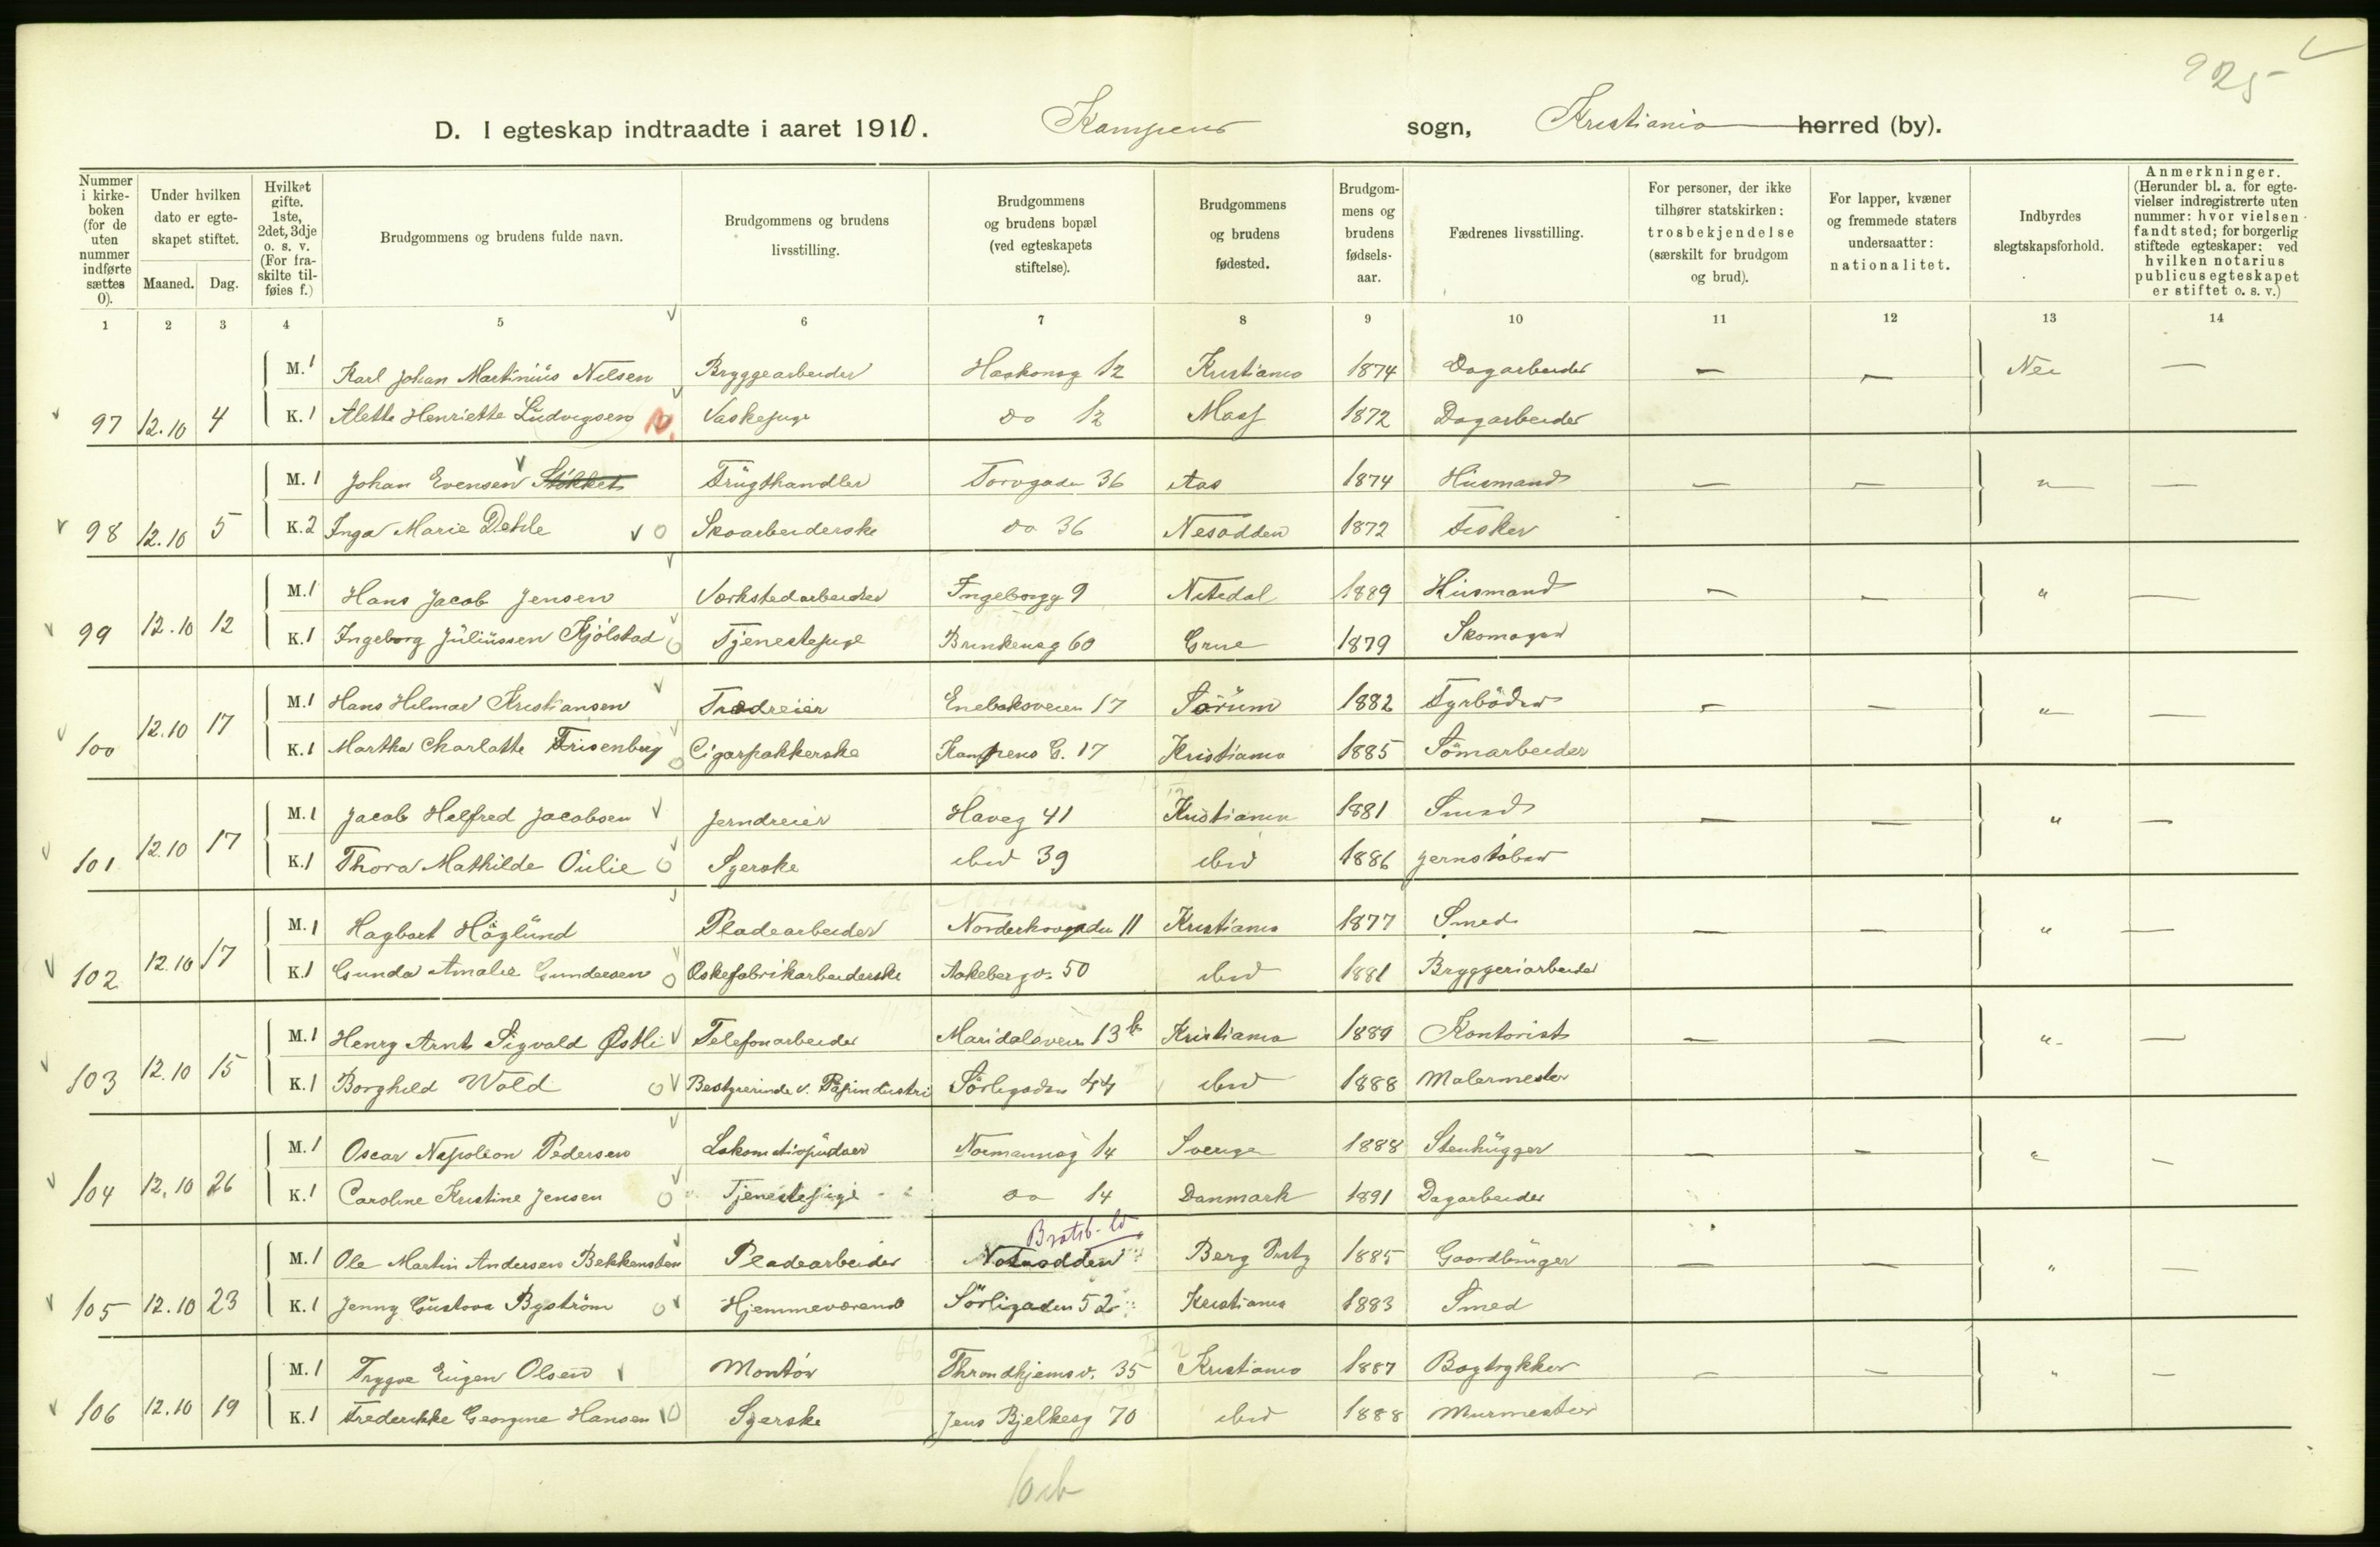 925
D. I egteskap indtraadte i aaret 1910. Kampens sogn, Kristiania herred (by).
Nummer i kirkeboken (for de uten nummer indførte sættes 0).
Under hvilken dato er egteskapet stiftet.
Maaned. Dag.
Hvilket gifte. 1ste, 2det, 3dje o. s. v. (For fraskilte tilføies f.)
Brudgommens og brudens fulde navn.
Brudgommens og brudens livsstilling.
Brudgommens og brudens bopæl (ved egteskapets stiftelse).
Brudgommens og brudens fødested.
Brudgommens og brudens fødselsaar.
Fædrenes livsstilling.
For personer, der ikke tilhører statskirken: trosbekjendelse (særskilt for brudgom og brud).
For lapper, kvæner og fremmede staters undersaatter: nationalitet.
Indbyrdes slegtskapsforhold.
Anmerkninger. (Herunder bl. a. for egtevielser indregistrerte uten nummer: hvor vielsen fandt sted; for borgerlig stiftede egteskaper: ved hvilken notarius publicus egteskapet er stiftet o. s. v.)
1 2 3 4 5 6 7 8 9 10 11 12 13 14
M. 1 Karl Johan Martinius Nilsen Bryggearbeider Haakonsg 12 Kristiania 1874 Dagarbeider — — Nei —
97 12.10 4 K. 1 Alette Henriette Ludvigsen Vaskepige do 12 Moss 1872 Dagarbeider
M. 1 Johan Evensen Stökket Frugthandler Torvgaden 36 Aas 1874 Husmand — — " —
98 12.10 5 K. 2 Inga Marie Dehle Skoarbeiderske do 36 Nesodden 1872 Fisker
M. 1 Hans Jacob Jensen Værkstedarbeider Ingeborgg 9 Nitedal 1889 Husmand — — " —
99 12.10 12 K. 1 Ingeborg Juliussen Kjölstad Tjenestepige Brinkensg 60 Grue 1879 Skomager
M. 1 Hans Hilmar Kristiansen Trædreier Enebaksveien 17 Sörum 1882 Fyrböder — — " —
100 12.10 17 K. 1 Martha Charlotte Frisenberg Cigarpakkerske Kampens G. 17 Kristiania 1885 Sömarbeider
M. 1 Jacob Helfred Jacobsen Jerndreier Haveg 41 Kristiania 1881 Smed — — " —
101 12.10 17 K. 1 Thora Mathilde Oulie Syerske ibid 39 ibid 1886 Jernstöber
M. 1 Hagbart Höglund Pladearbeider Norderhovgaden 11 Kristiania 1877 Smed — — " —
102 12.10 17 K. 1 Gunda Amalie Gundersen Æskefabrikarbeiderske Aakebergv. 50 ibid 1881 Bryggeriarbeider
M. 1 Henry Arnt Sigvald Østli Telefonarbeider Maridalsveien 13 b Kristiania 1889 Kontorist — — " —
103 12.10 15 K. 1 Borghild Wold Bestyrerinde v. Papirindustri Sörligaden 44 ibid 1888 Malermester
M. 1 Oscar Napoleon Pedersen Lokomotivpudser Normannsg 14 Sverige 1888 Stenhugger — — " —
104 12.10 26 K. 1 Caroline Kristine Jensen Tjenestepige do 14 Danmark 1891 Dagarbeider
Bratsb.
M. 1 Ole Martin Andersen Bekkensten Pladearbeider Notodden Berg 1885 Gaardbruger — — " —
105 12.10 23 K. 1 Jenny Gustova Byström Hjemmeværende Sörligaden 52 Kristiania 1883 Smed
M. 1 Trygve Eugen Olsen Montör Throndhjemsv. 35 Kristiania 1887 Bogtrykker — — " —
106 12.10 19 K. 1 Frederikke Georgine Hansen Syerske Jens Bjelkesg 70 ibid 1888 Murmester